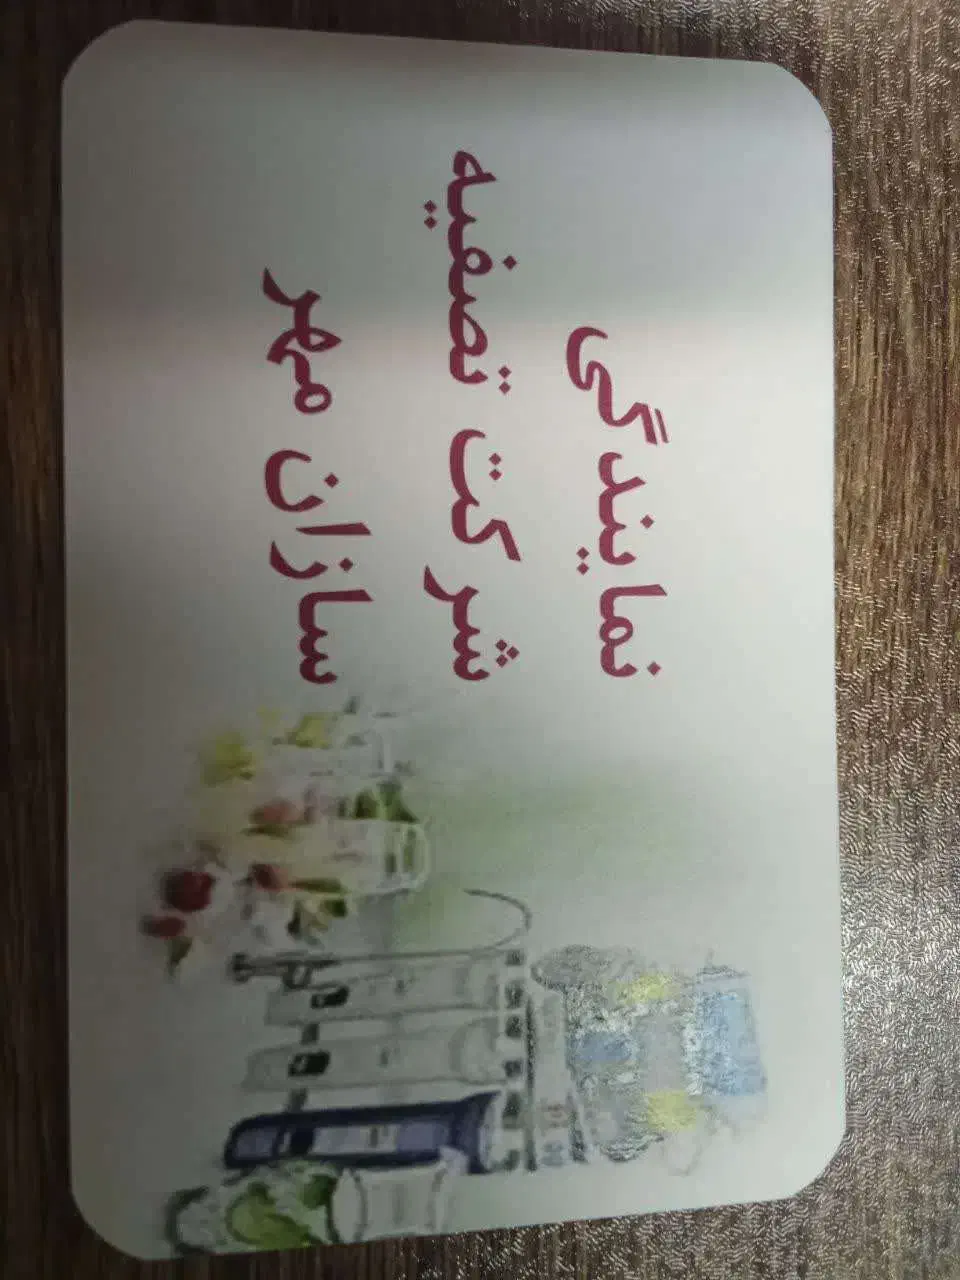 نمایندگی
شرکت تصفیه
سازان مهر